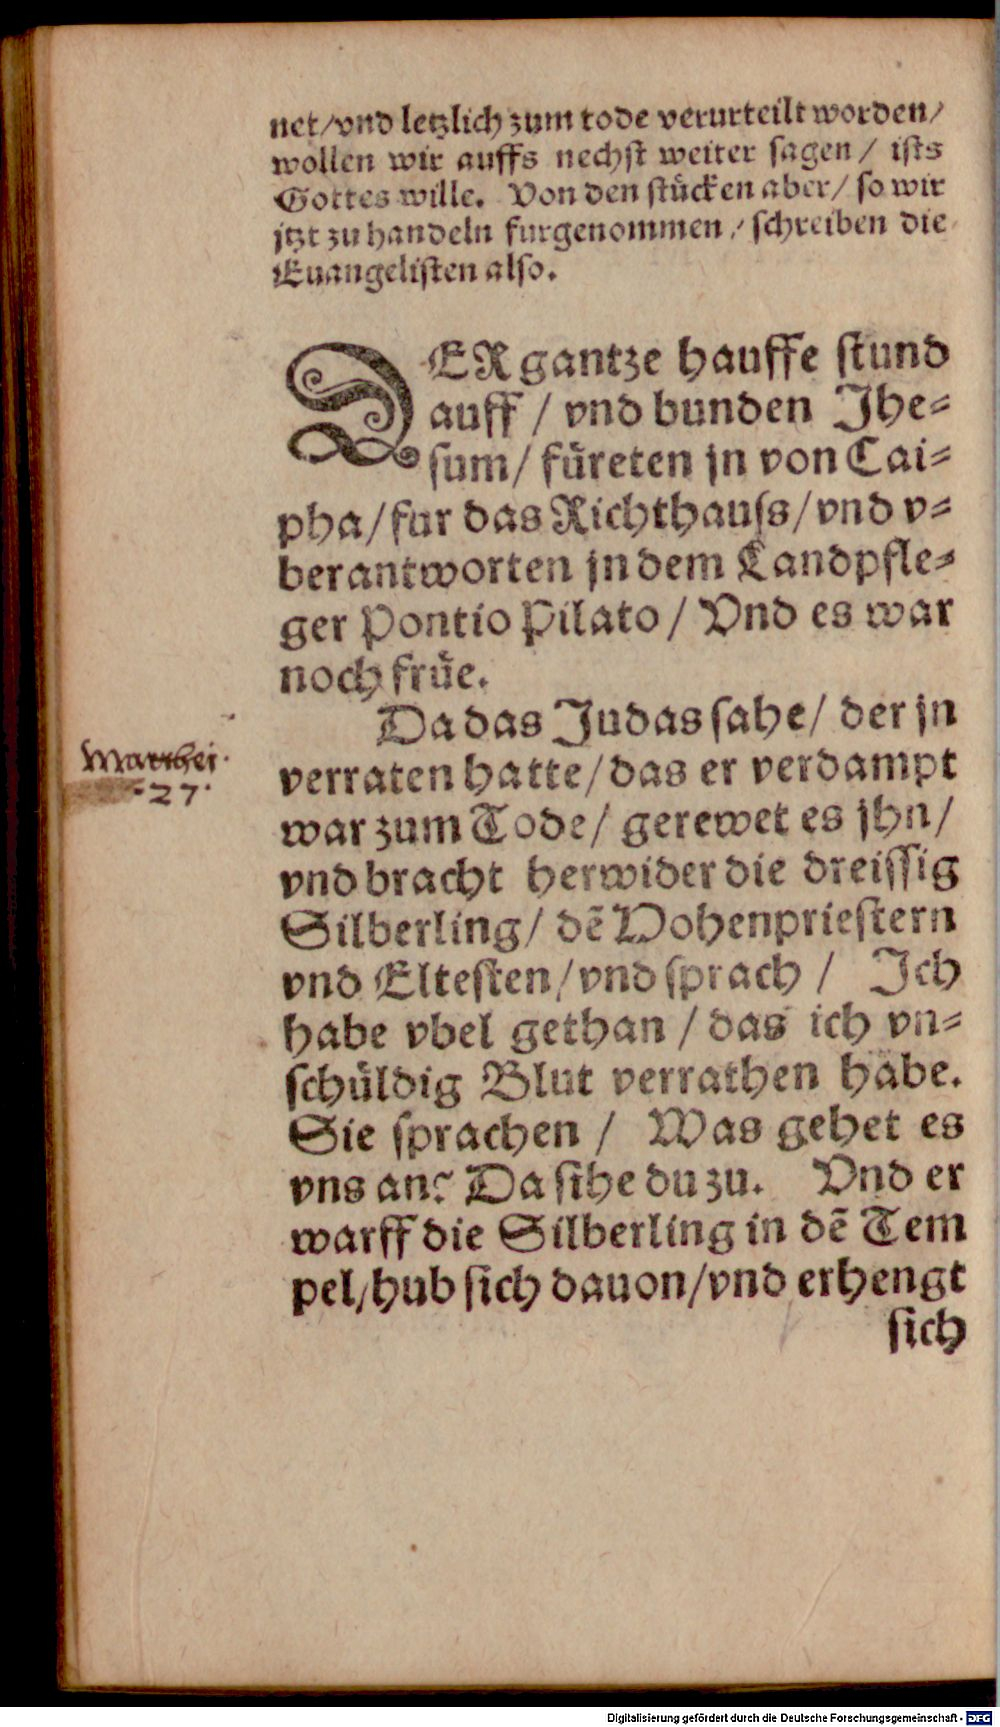 net/vnd letzlich zum tode verurteilt worden/
wollen wir auffs nechst weiter sagen/ ists
Gottes wille. Von den stücken aber/ so wir
jtzt zu handeln furgenommen/ schreiben die
Euangelisten also.
DER gantze hauffe stund
auff / vnd bunden Jhe=
sum/ füreten jn von Cai=
pha/fur das Richthauss/vnd v=
berantworten jn dem Landpfle=
ger Pontio Pilato/ Vnd es war
noch früe.
Da das Judas sahe/ der jn
verraten hatte/das er verdampt
war zum Tode/ gerewet es jhn/
vnd bracht herwider die dreissig
Silberling/ dē Hohenpriestern
vnd Eltesten/vnd sprach / Ich
habe vbel gethan / das ich vn=
schüldig Blut verrathen habe.
Sie sprachen / Was gehet es
vns an? Da sihe du zu. Vnd er
warff die Silberling in dē Tem
pel/hub sich dauon/vnd erhengt
sich
Matthei.
27.
Digitalisierung gefördert durch die Deutsche Forschungsgemeinschaft - DFG